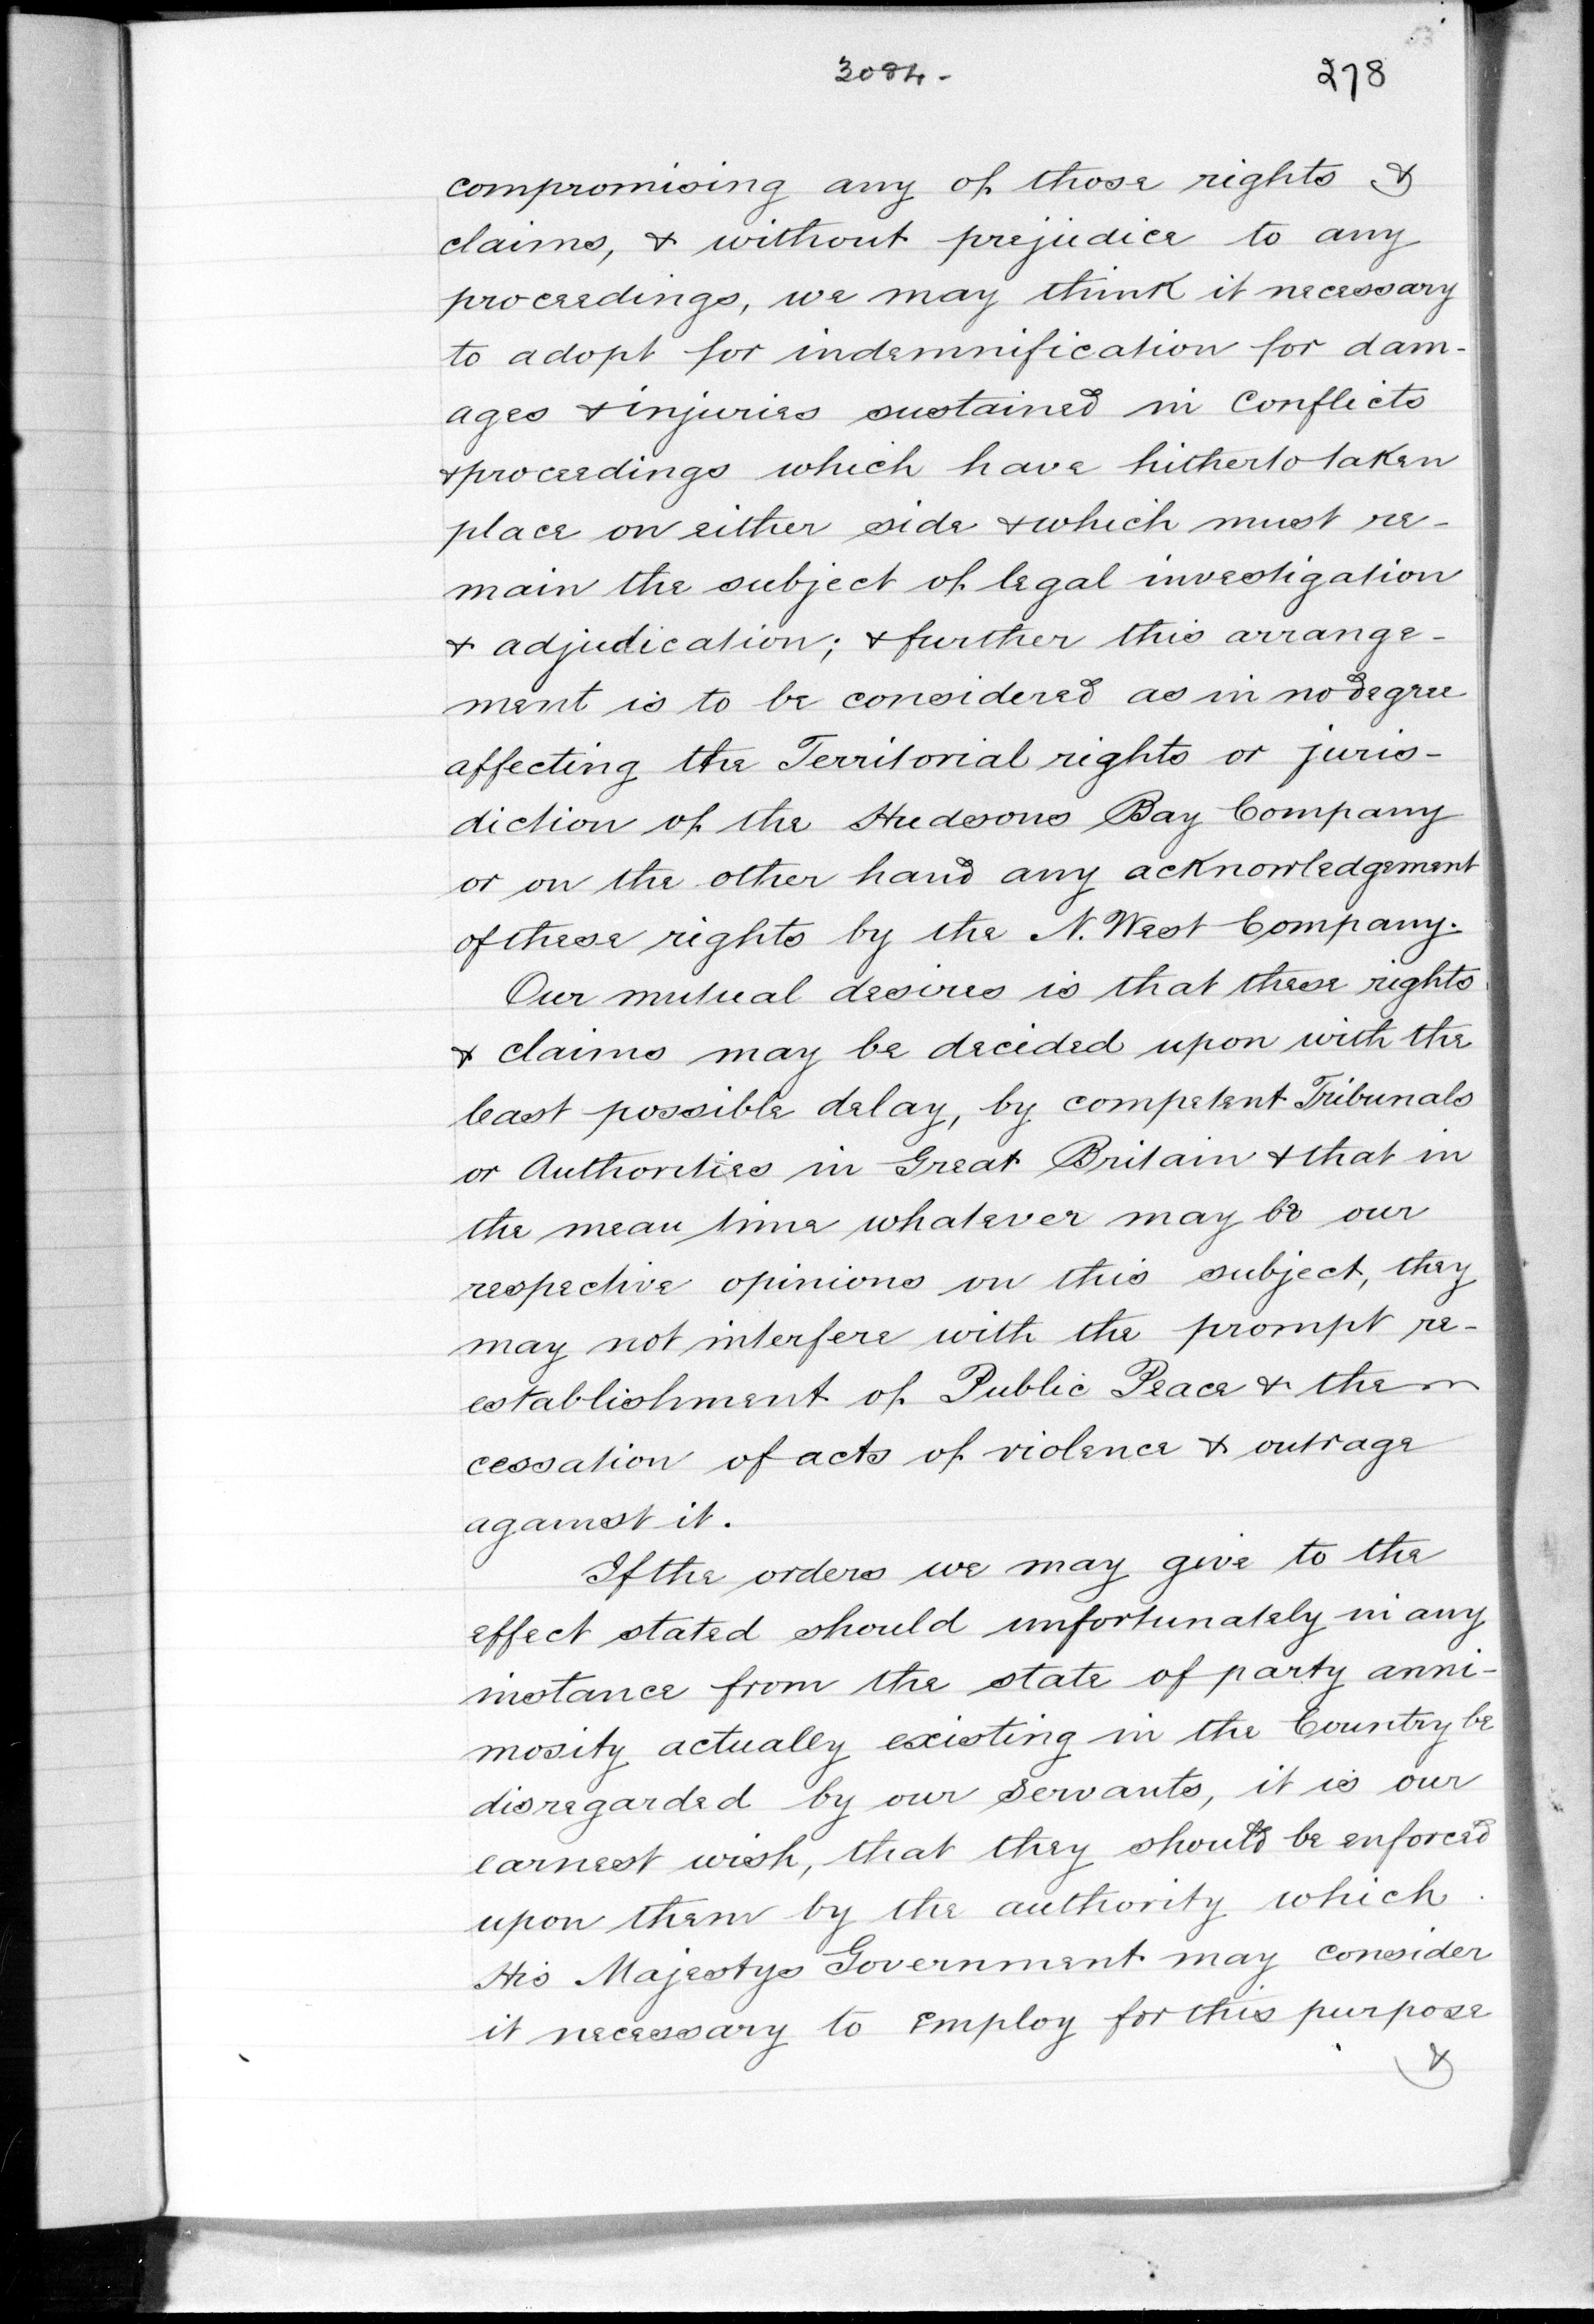 3084-
278
compromising any of those rights &
claims, & without prejudice to any
proceedings, we may think it necessary
to adopt for indemnification for dam-
ages & injuries sustained in Conflicts
& proceedings which have hitherto taken
place on either side & which must re-
main the subject of legal investigation
& adjudication; & further this arrange-
ment is to be considered as in no degree
affecting the Territorial rights or juris-
diction of the Hudsons Bay Company
or on the other hand any acknowledgement
of these rights by the N. West Company.
Our mutual desires is that these rights
& claims may be decided upon with the
least possible delay, by competent Tribunals
or Authorities in Great Britain & that in
the mean time whatever may be our
respective opinions on this subject, they
may not interfere with the prompt re-
establishment of Public Peace & the
cessation of acts of violence & outrage
against it.
If the orders we may give to the
effect stated should unfortunately in any
instance from the state of party anni-
mosity actually existing in the Country be
disregarded by our Servants, it is our
earnest wish, that they should be enforced
upon them by the authority which
His Majestys Government may consider
it necessary to employ for this purpose
&